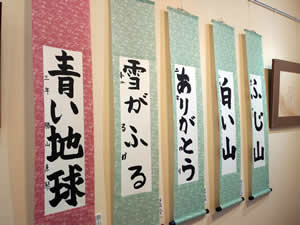 青い地球
雪がふる
ありがとう
白い山
ふじ山